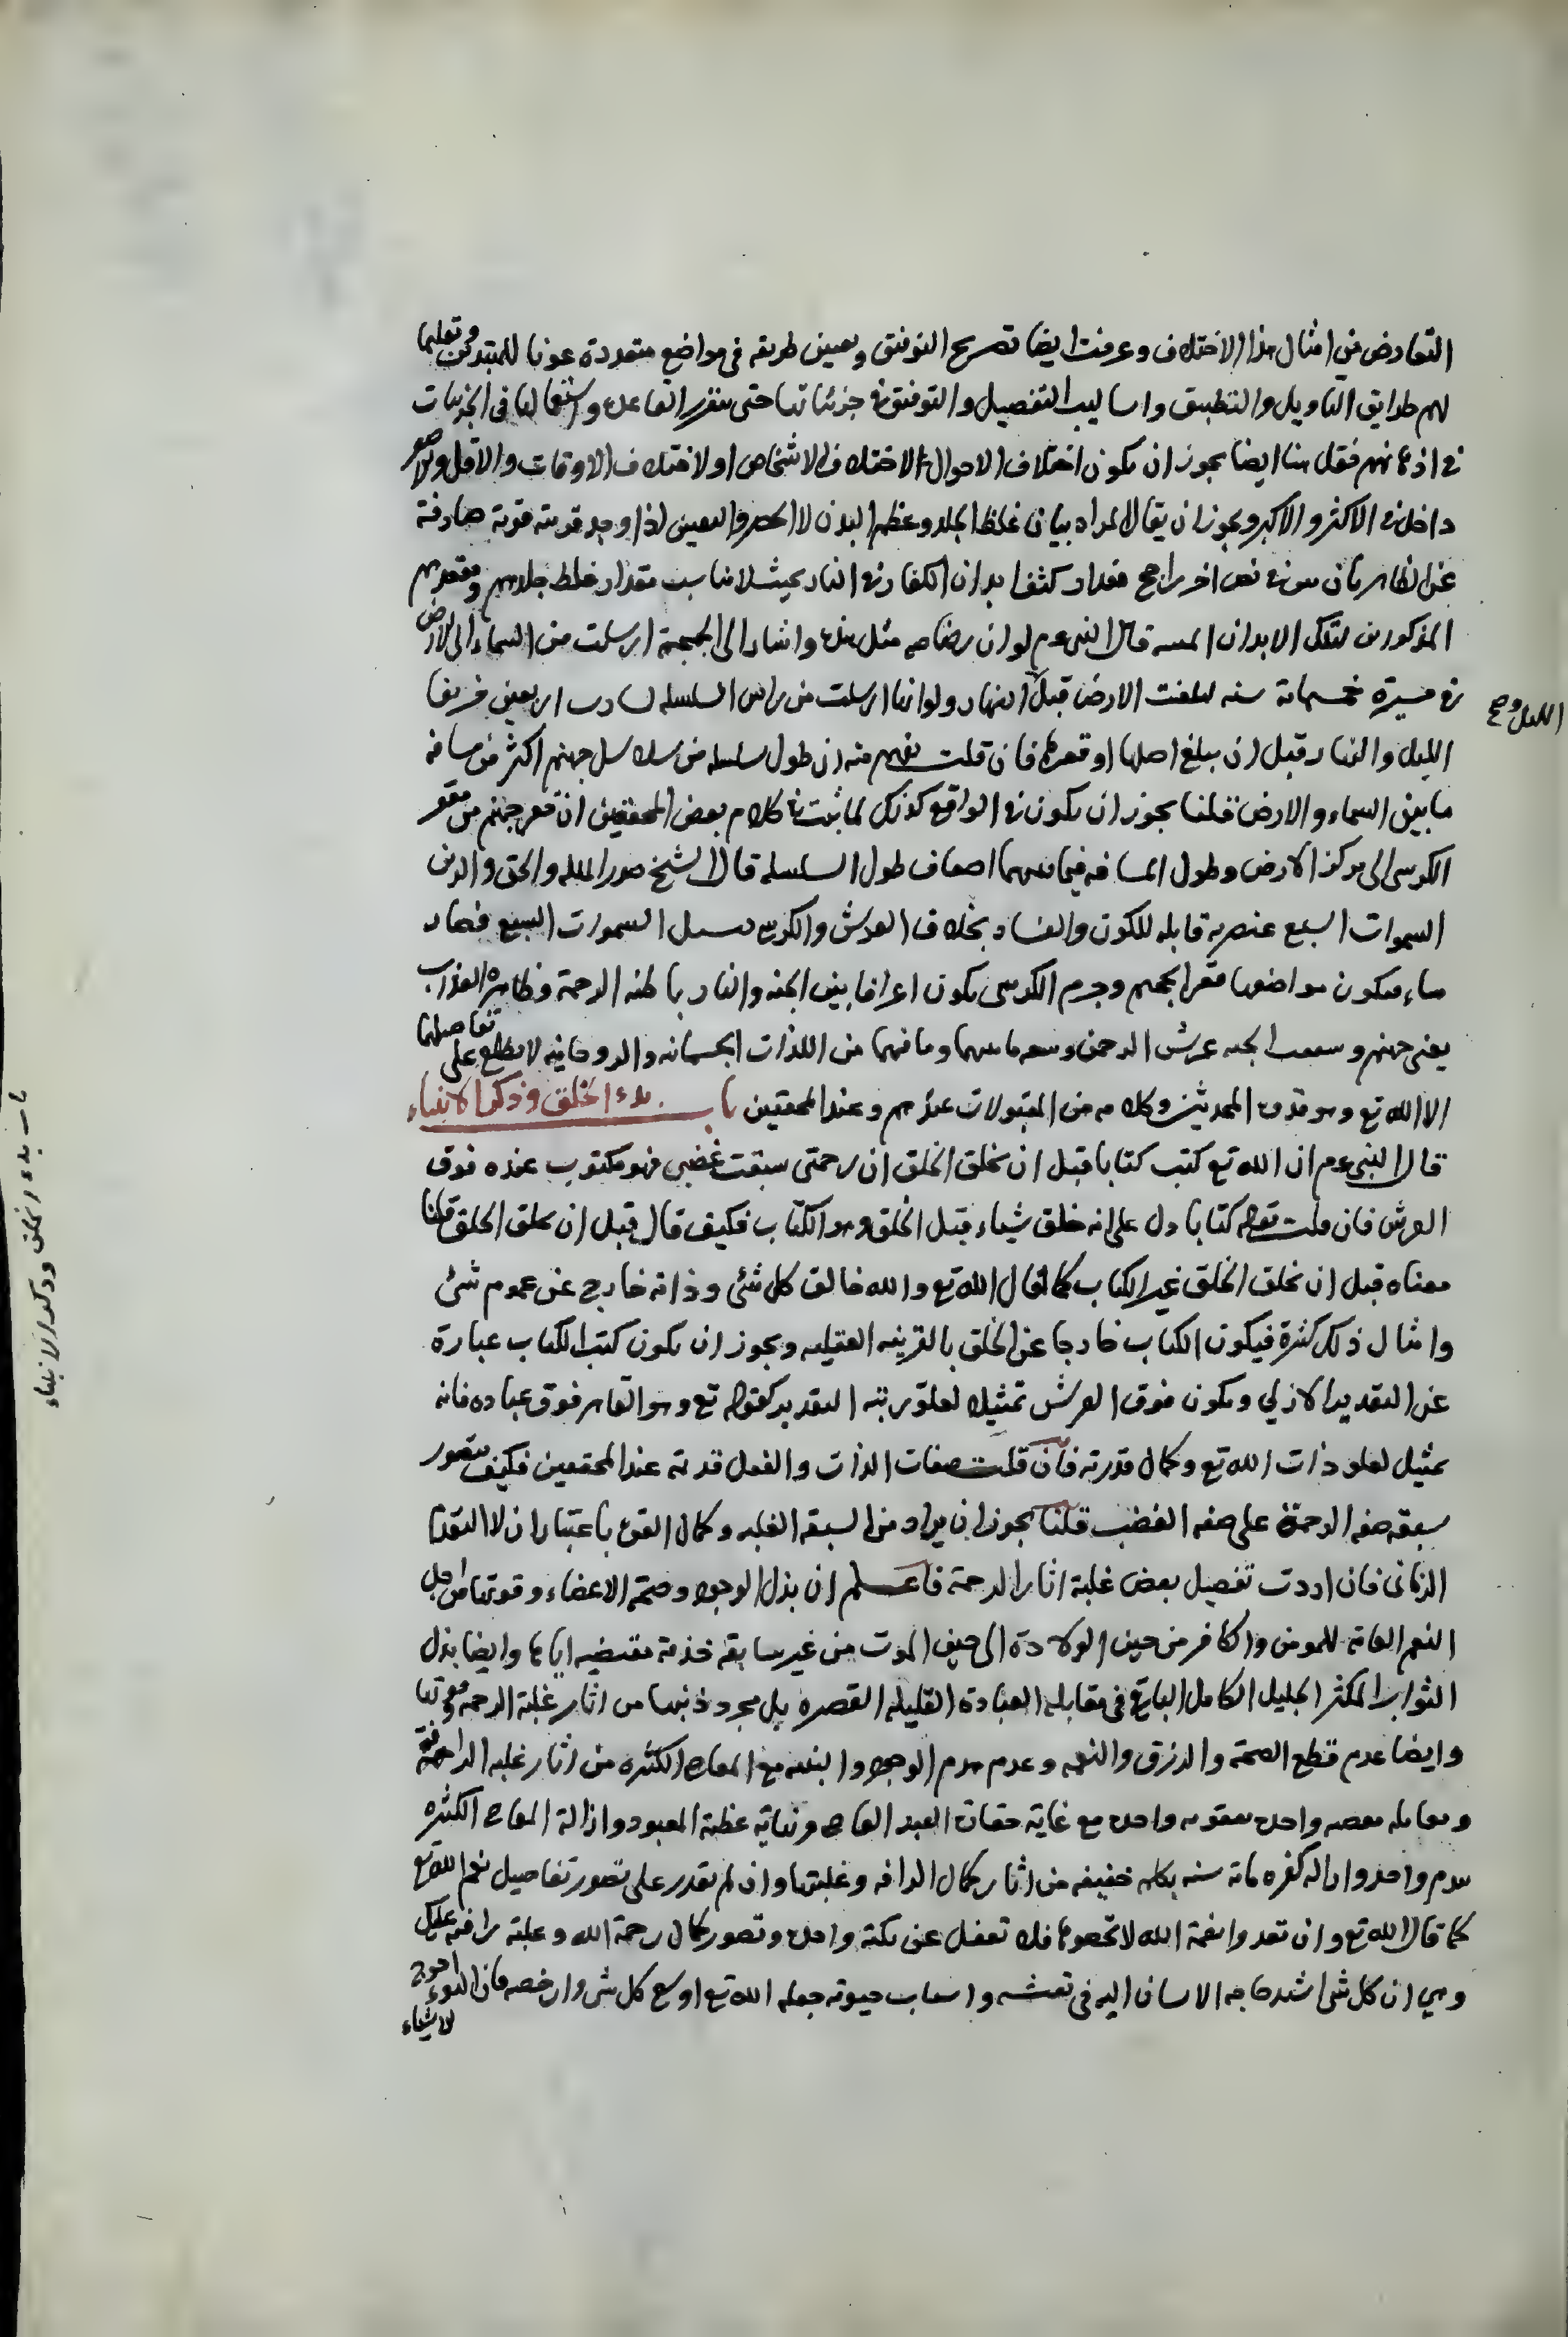 التعارض من امثال هذا الاختلاف وعرفت ايضا تصريح التوفيق وتعيين طريقه فى مواضع متعددة عونا للمبتدئين وتعليما
لهم طرايق التاويل والتطبيق واساليب التفصيل والتوفيق فى جزئياتها حتى يتقرر القاعدة واستعمالها فى الجزئيات
فى اذهانهم فقل هنا ايضا يجوز ان يكون اختلاف الاحوال لاختلاف الاشخاص او لاختلاف الاوقات والاقل والاصغر
داخل فى الاكثر والاكبر ويجوز ان يقال المراد بيان غلظ الجلد وعظم البدن لا الحصر والتعيين اذا وجد قرينة قوية صارفة
عن الظاهر بان يبين فى نص اخر راجح مقدار كثف ابدان الكفار فى النار بحيث لا يناسب مقدار غلظ جلدهم ومقعدهم
المذكورين لتلك الابدان قال النبى عم لو ان رضاضة مثل هذه واشار الى الجمجمة ارسلت من السماء الى الارض
فى مسيرة خمسمائة سنه لبلغت الارض قبل النهار ولو انها ارسلت من راس السلسله لسارت اربعين خريفا
الليل وصح
الليل والنهار قبل ان يبلغ اصلها او قعرها فان قلت يفهم منه ان طول سلسله من سلاسل جهنم اكثر من مسافة
ما بين السماء والارض قلنا يجوز ان يكون فى الواقع كذلك لما ثبت فى كلام بعض المحققين ان قعر جهنم من مقعر
الكرسى الى مركز الارض وطول المسافه فيما بينهما اضعاف طول السلسله قال الشيخ صدر المله والحق والدين
السموات السبع عنصرية قابله للكون والفساد بخلاف العرش والكرسى السموات السبع فصار
فيكون مواضعها مقعر الجحيم وجرم الكرسى يكون اعرافا بين الجنه والنار باطنه الرحمة وظاهره العذاب
يعنى جهنم وسقف الجنه عرش الرحمن وسعه ما بينهما وما فيهما من اللذات الجسمانيه والروحانيه لا يطلع على تفاصيلها
الا الله تع وهو قدوة المحدثين وكلامه من المقبولات عندهم وعند المحققين باب بدء الخلق وذكر الانبياء
باب بدء الخلق وذكر الانبياء
قال النبى عم ان الله تع كتب كتابا قبل ان يخلق الخلق ان رحمتى سبقت غضبى فهو مكتوب عنده فوق
العرش فان قلت قوله كتابا دل على انه خلق شياء قبل الخلق وهو الكتاب فكيف قال قبل ان يخلق الخلق قلنا
معناه قبل ان يخلق الخلق غير الكتاب كما قال الله تع والله خالق كل شئ وذاته خارج عن عموم شئ
وامثال ذلك كثيرة فيكون الكتاب خارجا عن الخلق بالقرينه العقليه ويجوز ان يكون كتب الكتاب عبارة
عن التقدير الازلي ويكون فوق العرش تمثيلا لعلو رتبه التقدير كقوله تع وهو القاهر فوق عباده فانه
تمثيل لعلو ذات الله تع وكمال قدرته فان قلت صفات الذات والفعل قديمة عند المحققين فكيف يتصور
سبقه صفه الرحمة على صفه الغضب قلنا يجوز ان يراد من السبقه الغلبه وكمال القوة باعتبار ان لا التقدم
الزمانى فان اردت تفصيل بعض غلبة اثار الرحمة فاعلم ان بذل الوجود وصحة الاعضاء وقوتها من اجل
النعم العامة للمومن والكافر من حين الولادة الى حين الموت من غير سابقة خدمة مقتضيه اياها وايضا بذل
الثواب المكثر الجليل الكامل الباقى فى مقابله العبادة القليله القصيره بل مجرد ذنبها من اثار غلبة الرحمه وقوتها
وايضا عدم قطع الصحة والرزق والنعمه وعدم هدم الوجود والبنيه مع المعاصى الكثيره من اثار غلبه الراحمة
ومقابله معصيه واحدة بعقوبه واحدة مع غاية حقارة العبد العاصى ونهاية عظمة المعبود وازالة المعاصى الكثيره
بندم واحد وازاله كفره مائة سنه بكلمه خفيفه من اثار كمال الرافه وغلبتها وان لم تقدر على تصور تفاصيل نعم الله تع
كما قال الله تع وان تعدوا نعمة الله لا تحصوها فلا تغفل عن نكتة واحدة وتصور كمال رحمة الله وغلبة رافته عليك
وهي ان كل شئ اشد حاجه الانسان اليه فى تعيشه واسباب حيوته جعله الله تع اوسع كل شئ وارخصه فان الهواء احوج
الاشياء